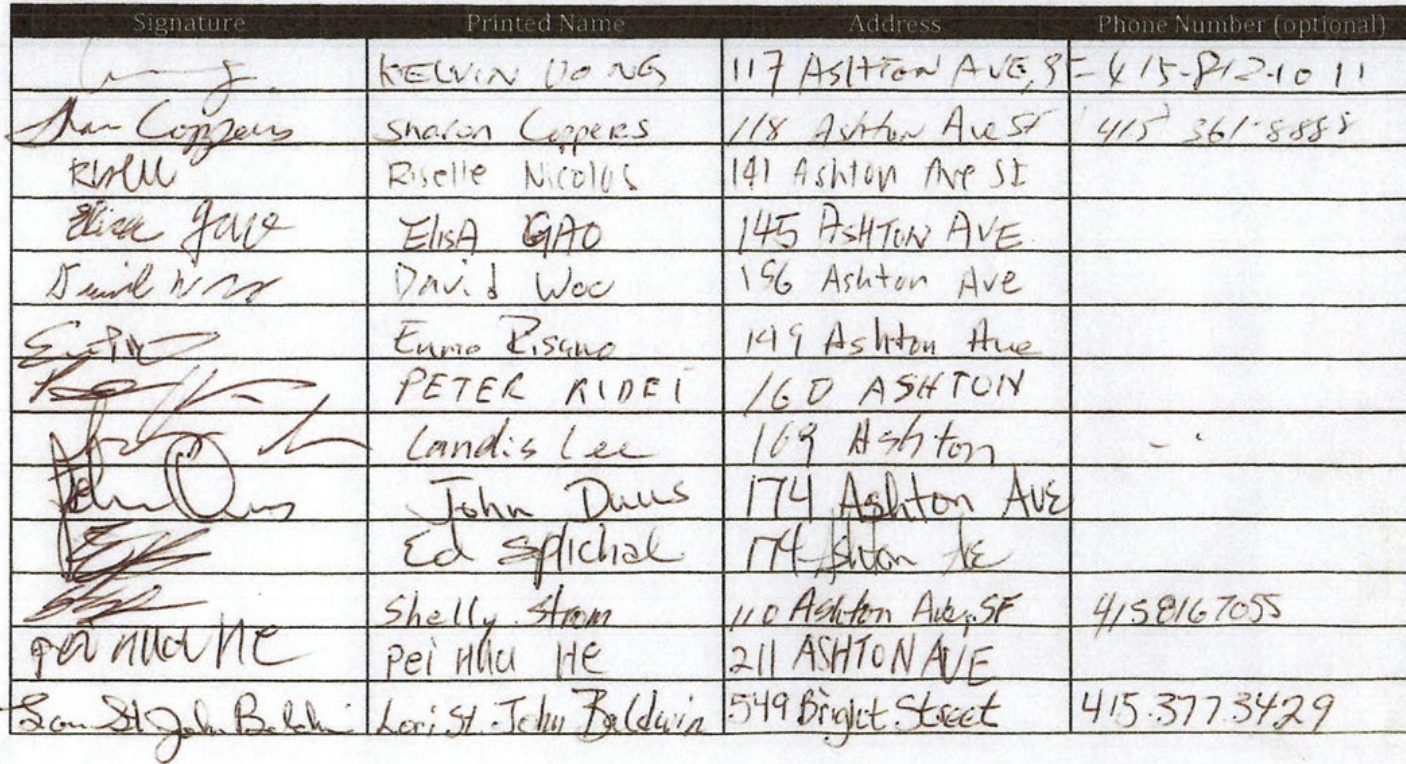 Signature Printed Name Address Phone Number (optional)
KELVIN 117 ASHTON AVE, 415-812-1011
Coppens Sharon Coppens 118 Ashton Ave SF 415 361-8888
Riselle Nicolas 141 Ashton Ave SF
Elisa Gao ElisA GAO 145 ASHTON AVE
David Woo David Woo 156 Ashton Ave
149 Ashton Ave
PETER RIDEI 160 ASHTON
Landis Lee 169 Ashton
John John 174 Ashton AVE
Ed Splichal 174 Ashton AVE
Shelly Strom 110 Ashton Ave, SF 4158167055
pei HUA HE pei HUA HE 211 ASHTON AVE
Lori St. John Baldwin Lori St. John Baldwin 549 Bright Street 415.377.3429